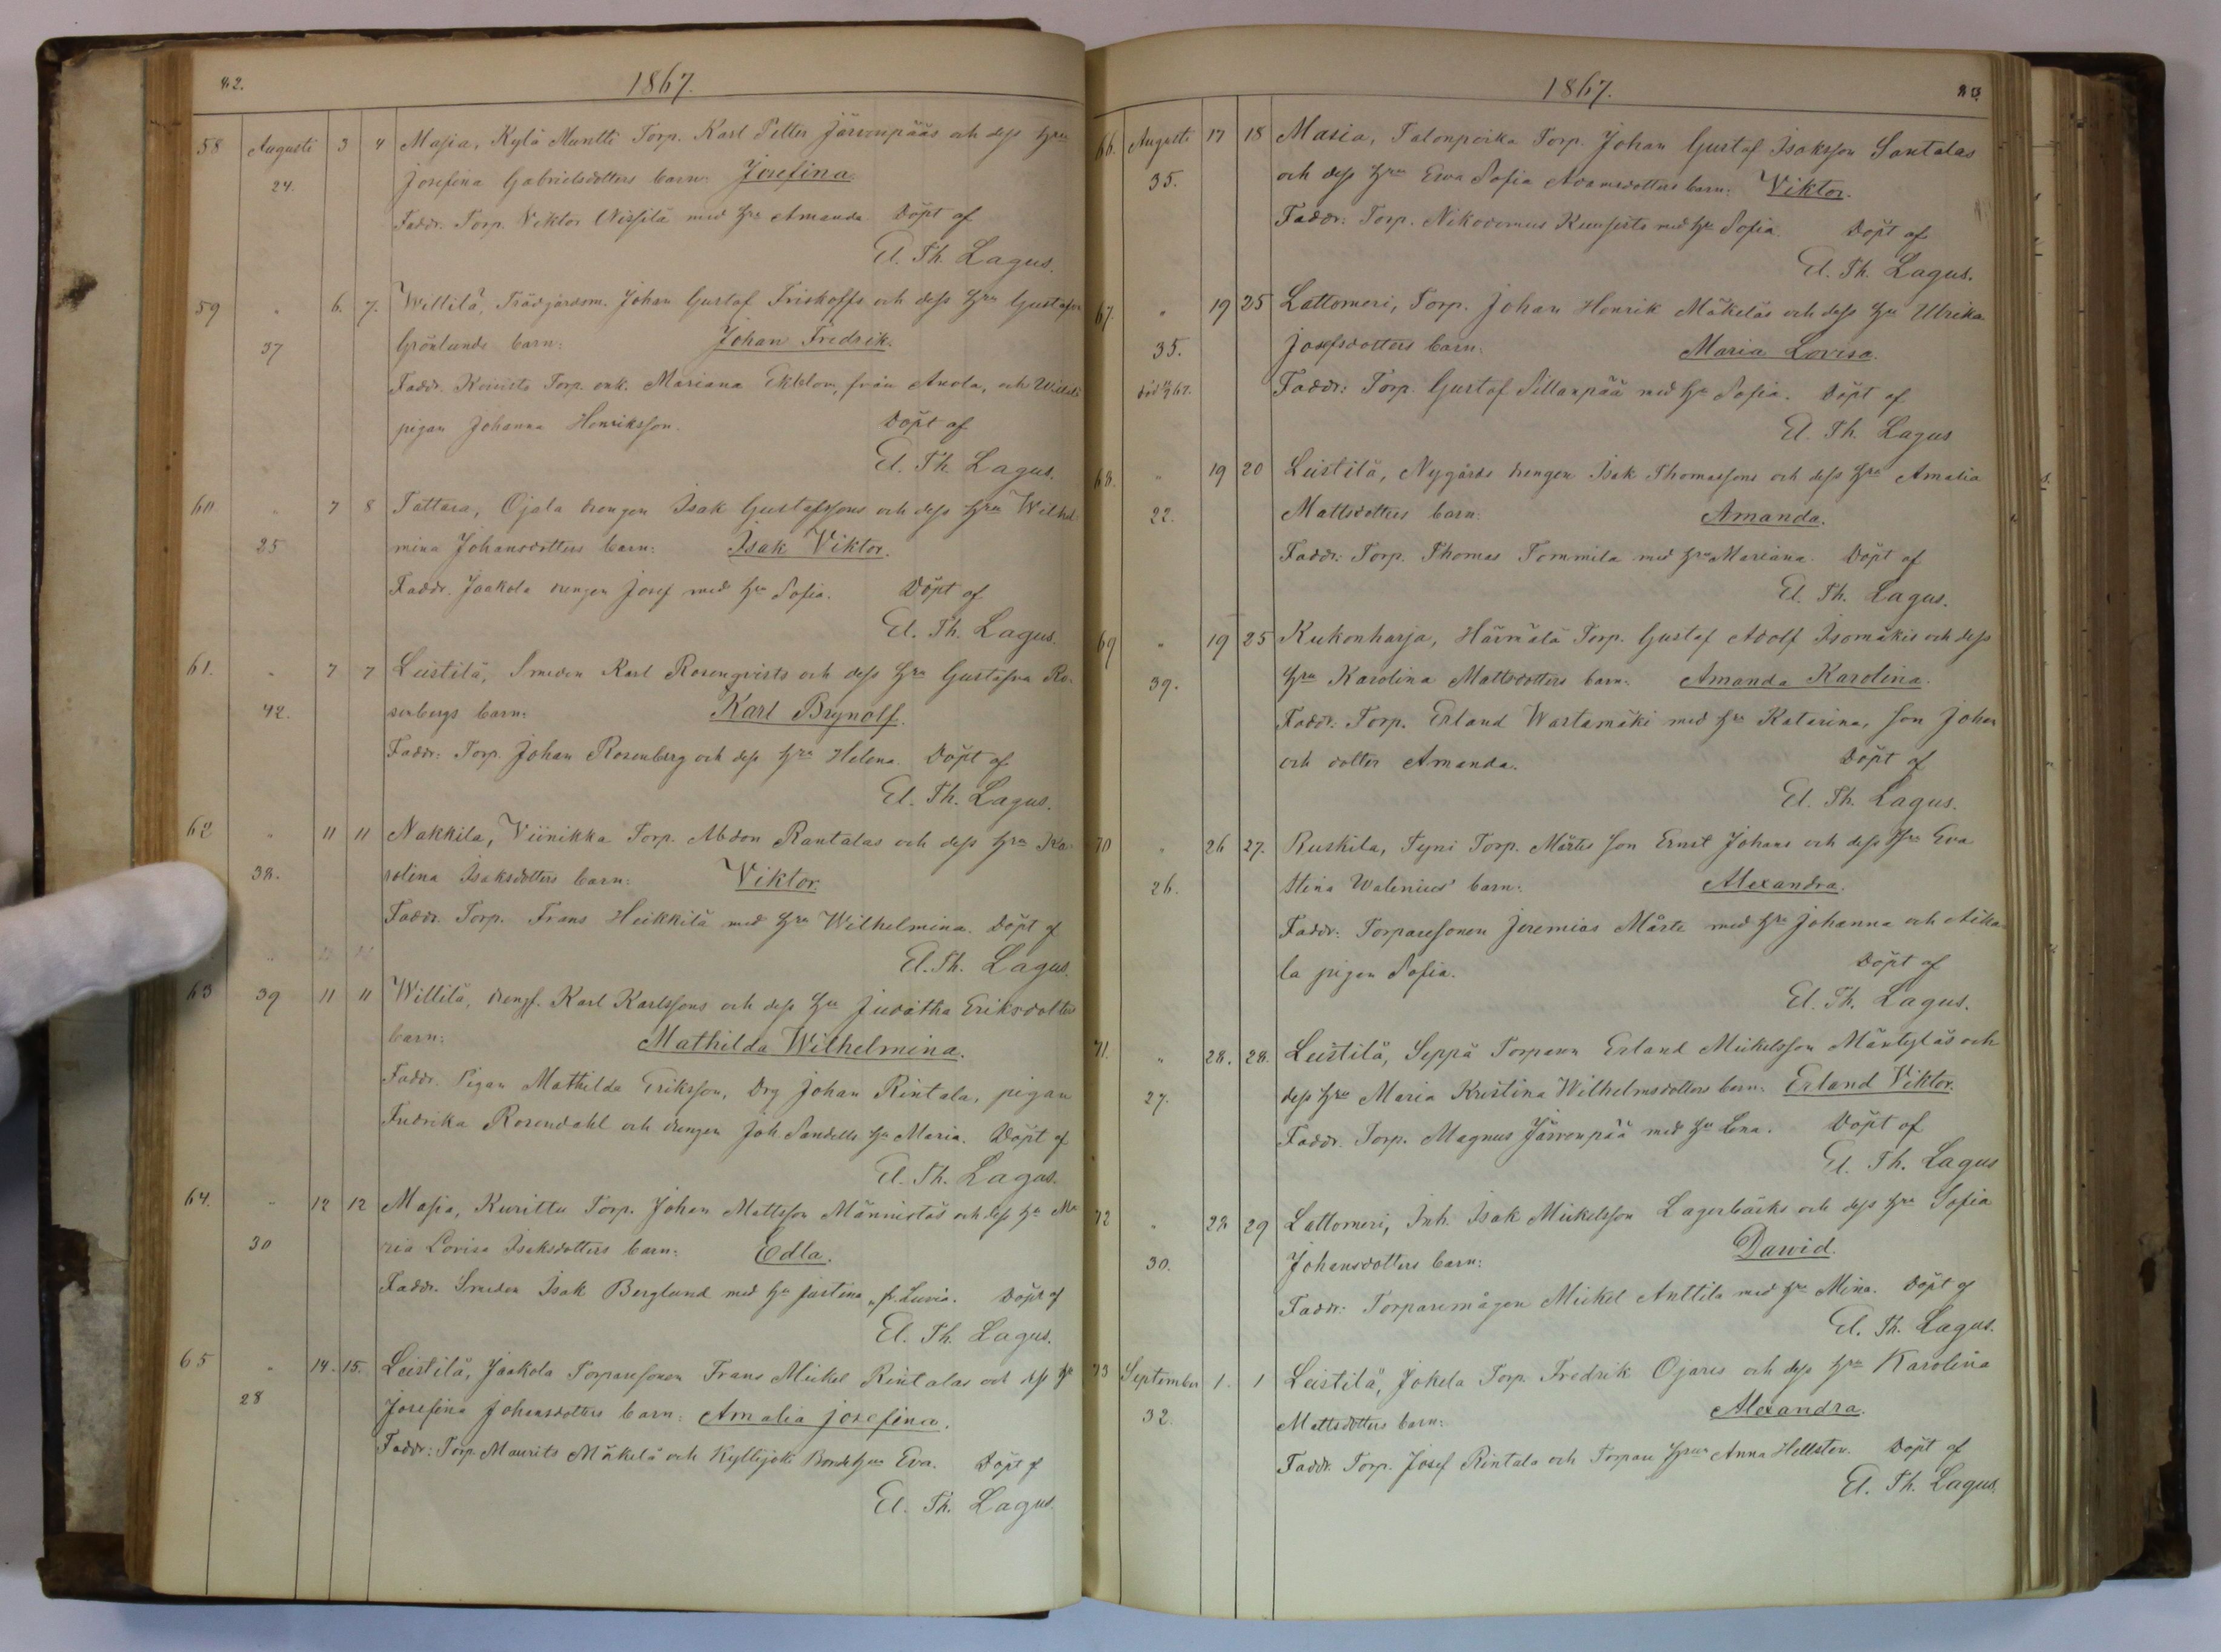 82.
1867.
58 Augusti 3 4 Masia, Kylä Muntti Torp. Karl Petter Järvenpääs och dess hru
24. Josefina Gabrielsdotters barn: Josefina.
Faddr. Torp. Viktor Nissilä med hru Amanda Döpt af
El. Th. Lagus.
59 " 6. 7. Willilä, Trädgårdsm. Johan Gustaf Friskoffs och dess hru Gustafva
37 Grönlunds barn: Johan Fredrik.
Faddr. Koivisto Torp. enk. Mariana Ekblom, från Anola, och Willilä
pigan Johanna Henriksson. Döpt af
El. Th. Lagus.
60 " 7 8 Tattara, Ojala drengen Isak Gustafssons och dess hru Wilhel-
25 mina Johansdotters barn: Isak Viktor.
Faddr. Jaakola drengen Josef med hru Sofia. Döpt af
El. Th. Lagus.
61. " 7 7 Leistilä, Smeden Karl Rosenqvists och dess hru Gustafva Ro-
42. senbergs barn: Karl Brynolf.
Faddr: Torp. Johan Rosenberg och dess hru Helena. Döpt af
El. Th. Lagus.
62 " 11 11 Nakkila, Viinikka Torp. Abdon Rantalas och dess hru Ka-
38. rolina Isaksdotters barn: Viktor.
Faddr. Torp. Frans Heikkilä med hru Wilhelmina. Döpt af
El. Th. Lagus.
63 39 11 11 Willilä, drengs. Karl Karlssons och dess hru Judatha Eriksdotters
barn: Mathilda Wilhelmina.
Faddr. Pigan Mathilda Eriksson, Drg Johan Rintala, pigan
Fredrika Rosendahl och drengen Joh. Sandells hru Maria. Döpt af
El. Th. Lagus.
64. " 12 12 Masia, Kurittu Torp. Johan Mattsson Männistös och dess hru Ma-
30 ria Lovisa Isaksdotters barn: Edla.
Faddr. Smeden Isak Berglund med hru Justina, fr. Luvia. Döpt af
El. Th. Lagus.
65 " 14. 15. Leistilä, Jaakola Torparesonen Frans Mickel Rintalas och dess hru
28 Josefina Johansdotters barn: Amalia Josefina.
Faddr: Torp Maurits Mäkelä och Kyllijoki Bondehrun Eva. Döpt af
El. Th. Lagus.
1867.
83.
66. Augusti 17 18 Masia, Talonpoika Torp. Johan Gustaf Isaksson Santalas
35. och dess hru Eva Sofia Adamsdotters barn: Viktor.
Faddr: Torp. Nikodemus Kuusisto med hru Sofia. Döpt af
El. Th. Lagus.
67. " 19 25 Lattomeri, Torp. Johan Henrik Mäkeläs och dess hru Ulrika
35. Josefsdotters barn: Maria Lovisa.
Faddr: Torp. Gustaf Sillanpää med hru Sofia. Döpt af
El. Th. Lagus
68. " 19 20 Leistilä, Nygårds drengen Isak Thomassons och dess hru Amalia
22. Mattsdotters barn: Amanda.
Faddr: Torp. Thomas Tommila med hru Mariana. Döpt af
El. Th. Lagus.
69 " 19 25 Kukonharja, Härmälä Torp. Gustaf Adolf Isomäkis och dess
39. hru Karolina Mattsdotters barn: Amanda Karolina.
Faddr: Torp. Erland Wartamäki med hru Katarina, son Johan
och dotter Amanda. Döpt af
El. Th. Lagus.
70 " 26 27. Ruskila, Tyni Torp. Mårtes son Ernst Johans och dess hru Eva
26. Stina Walenius' barn: Alexandra.
Faddr: Torparesonen Jeremias Mårte med hru Johanna och Alka-
la pigan Sofia. Döpt af
El. Th. Lagus.
71. " 28. 28. Leistilä, Seppä Torparen Erland Mickelsson Mäntyläs och
27. dess hru Maria Kristina Wilhelmsdotters barn: Erland Viktor.
Faddr. Torp. Magnus Järvenpää med hru Lena. Döpt af
El. Th. Lagus
72 " 28 29 Lattomeri, Inh. Isak Mickelsson Lagerbäcks och dess hru Sofia
30. Johansdotters barn: Dawid.
Faddr: Torparemågen Mickel Anttila med hru Mina. Döpt af
El. Th. Lagus.
73 September 1. 1 Leistilä, Jokela Torp. Fredrik Ojares och dess hru Karolina
32. Mattsdotters barn: Alexandra.
Faddr. Torp. Josef Rintala och Torpare hrun Anna Hellsten. Döpt af
El. Th. Lagus.